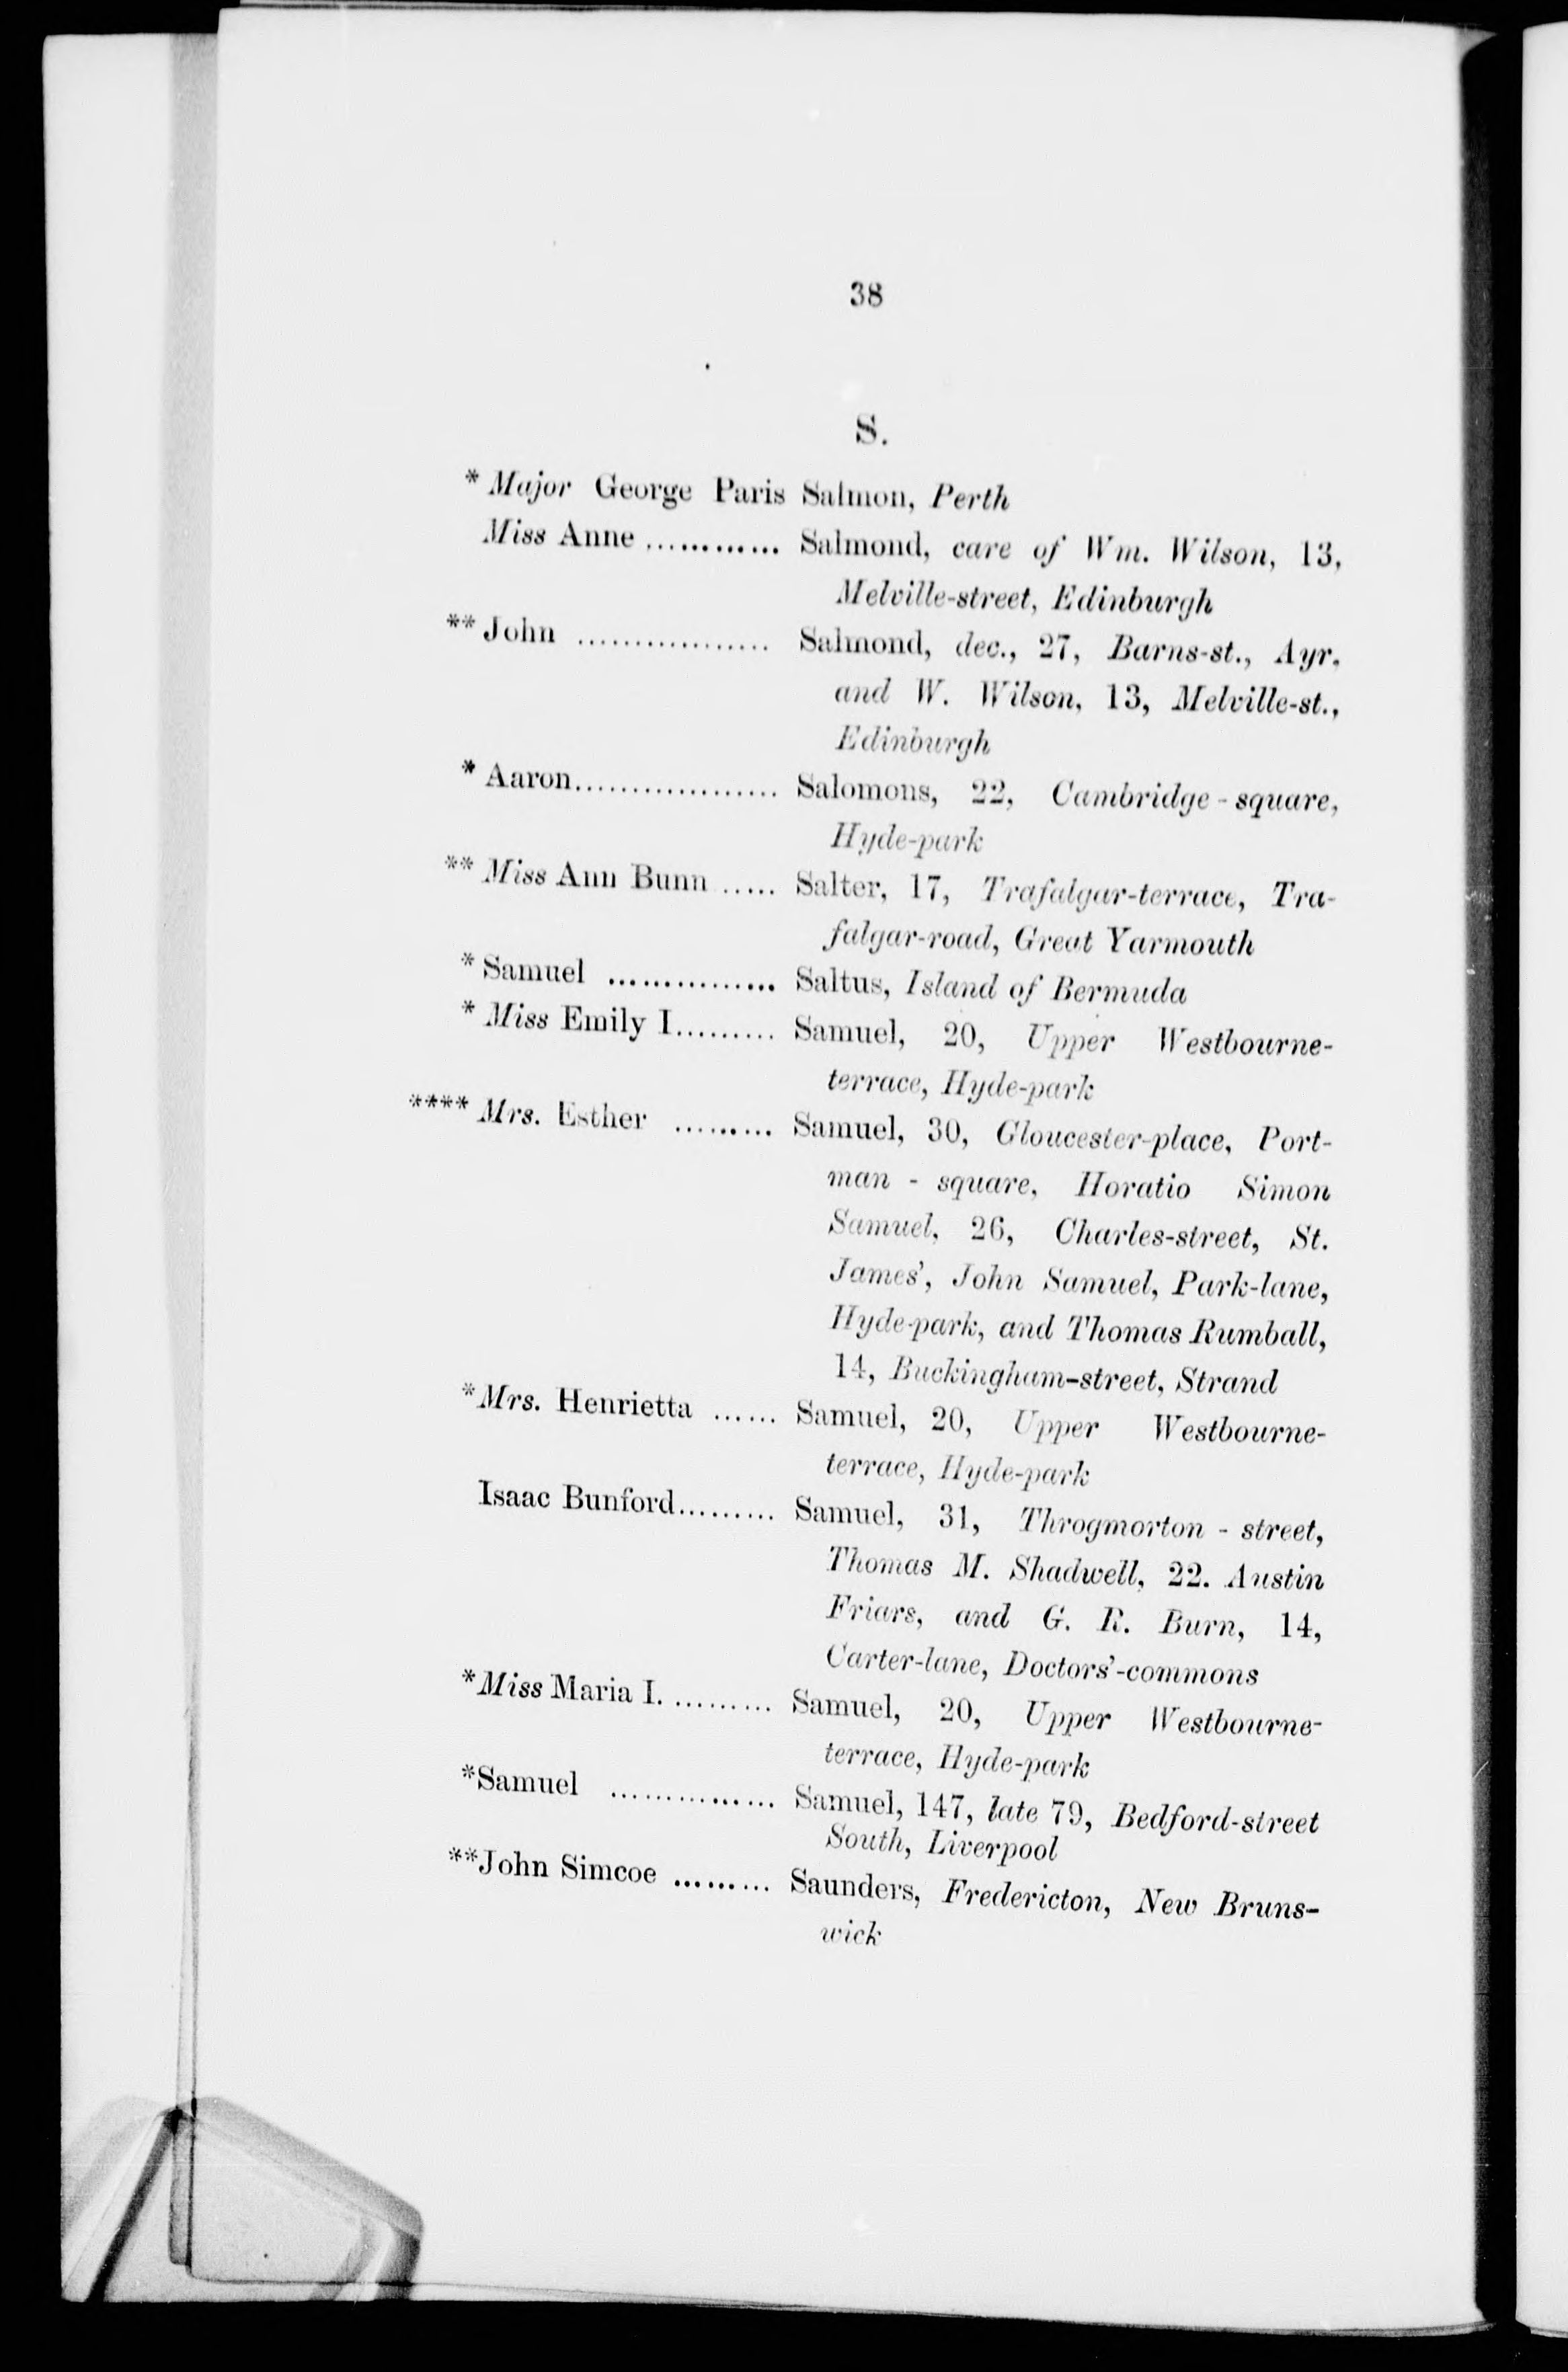 38
S.
* Major George Paris Salmon, Perth
Miss Anne ............ Salmond, care of Wm. Wilson, 13,
Melville-street, Edinburgh
** John ................. Salmond, dec., 27, Barns-st., Ayr,
and W. Wilson, 13, Melville-st.,
Edinburgh
* Aaron.................. Salomons, 22, Cambridge - square,
Hyde-park
** Miss Ann Bunn ..... Salter, 17, Trafalgar-terrace, Tra-
falgar-road, Great Yarmouth
* Samuel ............... Saltus, Island of Bermuda
* Miss Emily I......... Samuel, 20, Upper Westbourne-
terrace, Hyde-park
**** Mrs. Esther ......... Samuel, 30, Gloucester-place, Port-
man - square, Horatio Simon
Samuel, 26, Charles-street, St.
James', John Samuel, Park-lane,
Hyde-park, and Thomas Rumball,
14, Buckingham-street, Strand
*Mrs. Henrietta ...... Samuel, 20, Upper Westbourne-
terrace, Hyde-park
Isaac Bunford......... Samuel, 31, Throgmorton - street,
Thomas M. Shadwell, 22. Austin
Friars, and G. R. Burn, 14,
Carter-lane, Doctors'-commons
*Miss Maria I. .......... Samuel, 20, Upper Westbourne-
terrace, Hyde-park
*Samuel ............... Samuel, 147, late 79, Bedford-street
South, Liverpool
**John Simcoe ......... Saunders, Fredericton, New Bruns-
wick